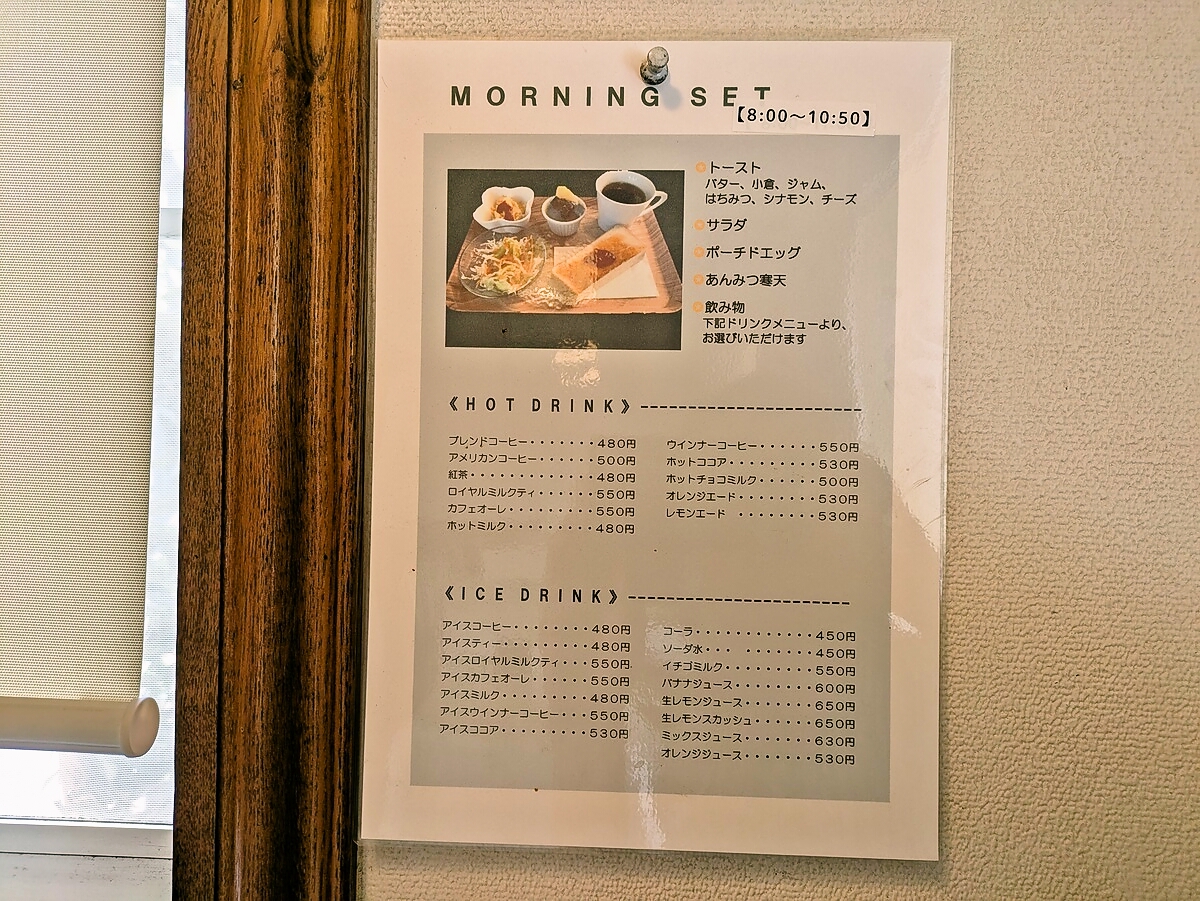 MORNING SET
【8:00～10:50】
トースト
バター、小倉、ジャム、
はちみつ、シナモン、チーズ
サラダ
ポーチドエッグ
あんみつ寒天
飲み物
下記ドリンクメニューより、
お選びいただけます
《HOT DRINK》----------------------
ブレンドコーヒー・・・・・・・480円
アメリカンコーヒー・・・・・・500円
紅茶・・・・・・・・・・・・・480円
ロイヤルミルクティ・・・・・・550円
カフェオーレ・・・・・・・・・550円
ホットミルク・・・・・・・・・480円
ウインナーコーヒー・・・・・・550円
ホットココア・・・・・・・・・530円
ホットチョコミルク・・・・・・500円
オレンジエード・・・・・・・・530円
レモンエード ・・・・・・・・530円
《ICE DRINK》----------------------
アイスコーヒー・・・・・・・・480円
アイスティー・・・・・・・・・480円
アイスロイヤルミルクティ・・・550円
アイスカフェオーレ・・・・・・550円
アイスミルク・・・・・・・・・480円
アイスウインナーコーヒー・・・550円
アイスココア・・・・・・・・・530円
コーラ・・・・・・・・・・・・450円
ソーダ水・・・ ・・・・・・・450円
イチゴミルク・・・・・・・・・550円
バナナジュース・・・・・・・・600円
生レモンジュース・・・・・・・650円
生レモンスカッシュ・・・・・・650円
ミックスジュース・・・・・・・630円
オレンジジュース・・・・・・・530円